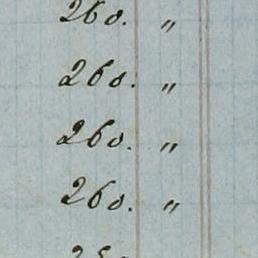 260. "
260. "
260. "
260. "